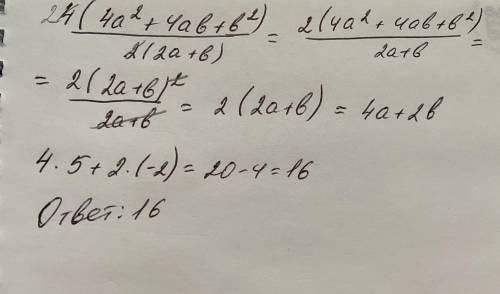 24(4a² + 4ab + b²) / 2(2a + b) = 2(4a² + 4ab + b²) / 2a + b =
= 2(2a + b)² / 2a + b = 2(2a + b) = 4a + 2b
4 · 5 + 2 · (-2) = 20 - 4 = 16
Ответ: 16